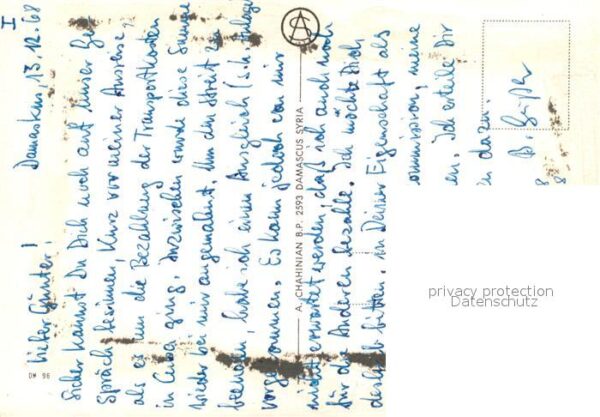 I
Damaskus, 13.12.68
Lieber Günter!
Sicher kannst Du Dich noch auf unser Ge-
spräch besinnen, kurz vor meiner Ausreise,
als es um die Bezahlung der Transportkosten
in Cuba ging. Inzwischen wurde diese Summe
wieder bei mir angemahnt. Um den Streit zu
beenden, habe ich einen Ausgleich (s.
vorgenommen. Es kann jedoch von mir
nicht erwartet werden, daß ich auch noch
für die Anderen bezahle. Ich möchte Dich
deshalb bitten, in Deiner Eigenschaft als
ommission, meine
en. Ich erteile Dir
dazu.
B.
A. CHAHINIAN B.P. 2593 DAMASCUS SYRIA
DM 96
privacy protection
Datenschutz